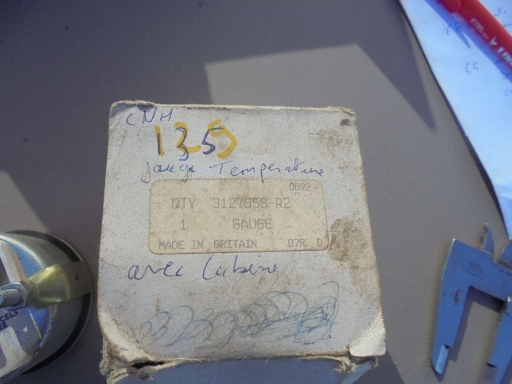 CNH
135
jauge Temperature
0092
QTY 3127958-R2
1 GAUGE
MADE IN BRITAIN 07R D
avec Cabine